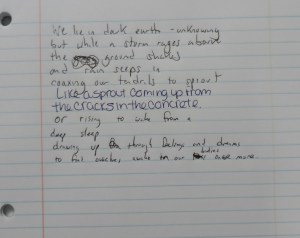 We lie in dark earth - unknowing
but while a storm rages above
the ground shakes
and rain seeps in
coaxing our tendrils to sprout
Like a sprout coming up from
the cracks in the concrete.
Or rising to wake from a
deep sleep
drawing up through and dreams
to find ourselves, awake in our bodies once more